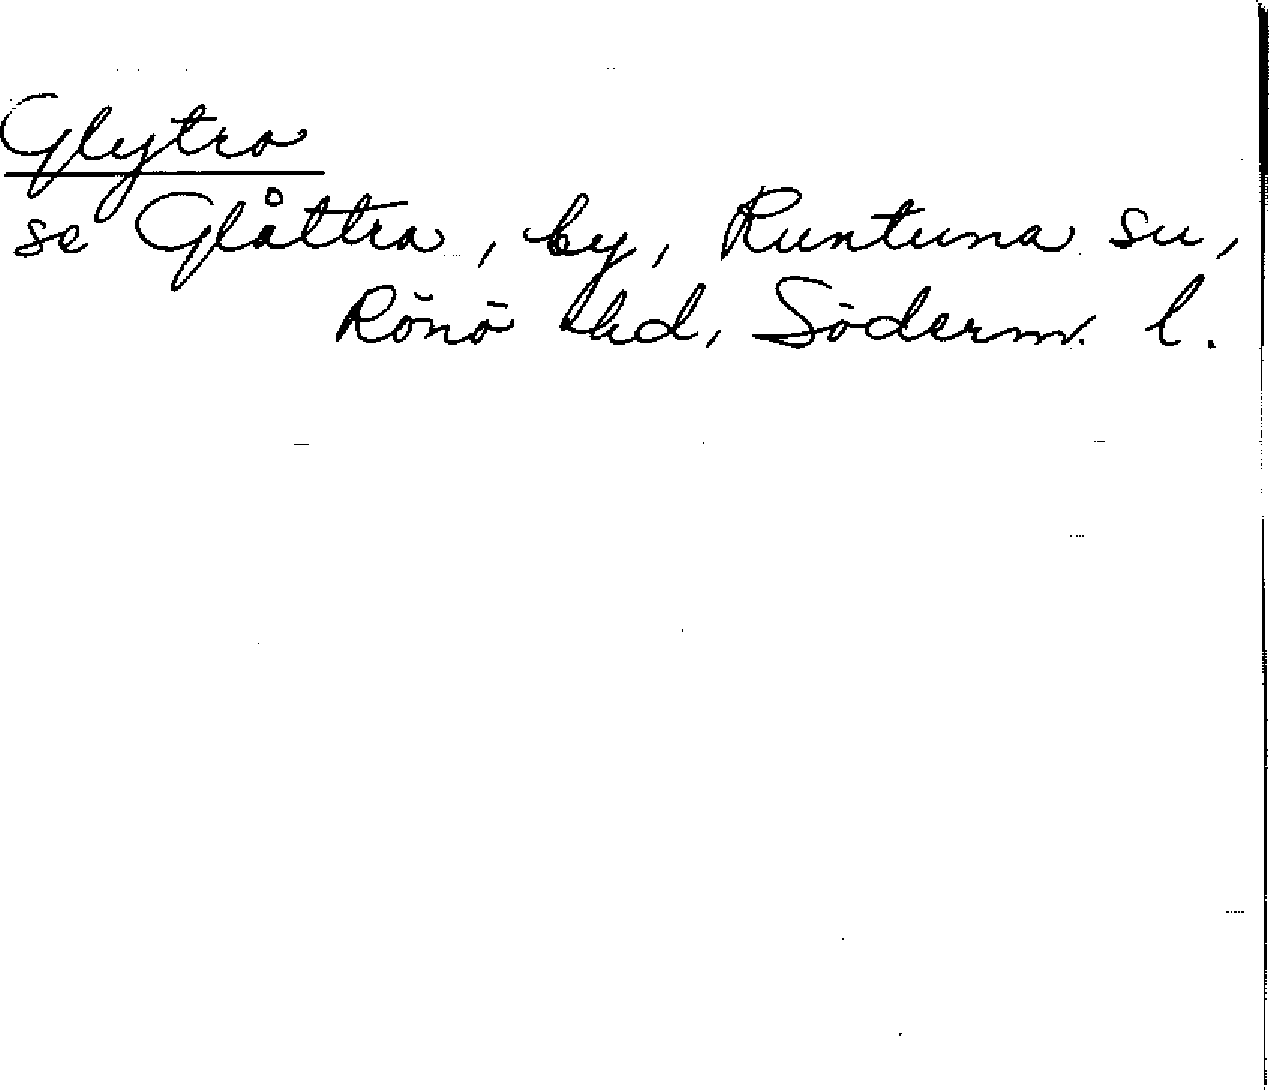 Glytra
se Glåttra, by, Runtuna sn,
Rönö hd, Söderm. l.